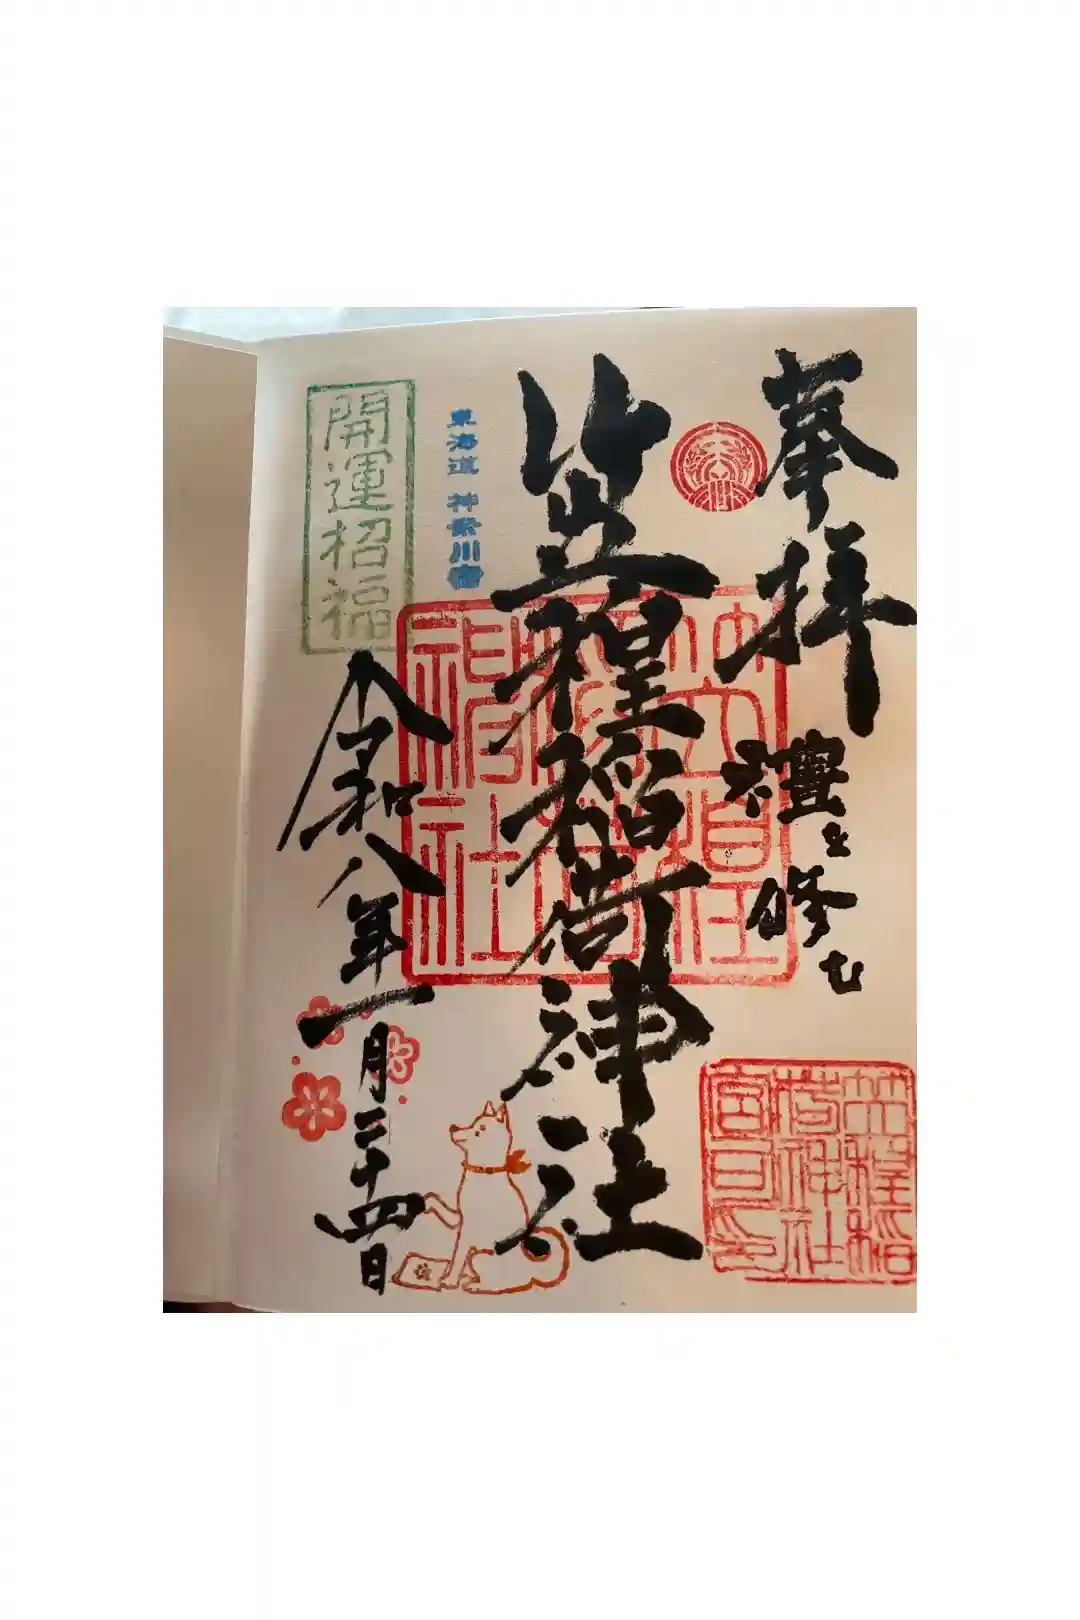 奉拝
禮を修む
笠䅣稲荷神社
東海道 神奈川宿
開運招福
令和八年一月二十四日
笠䅣稲
荷神社
宮司印